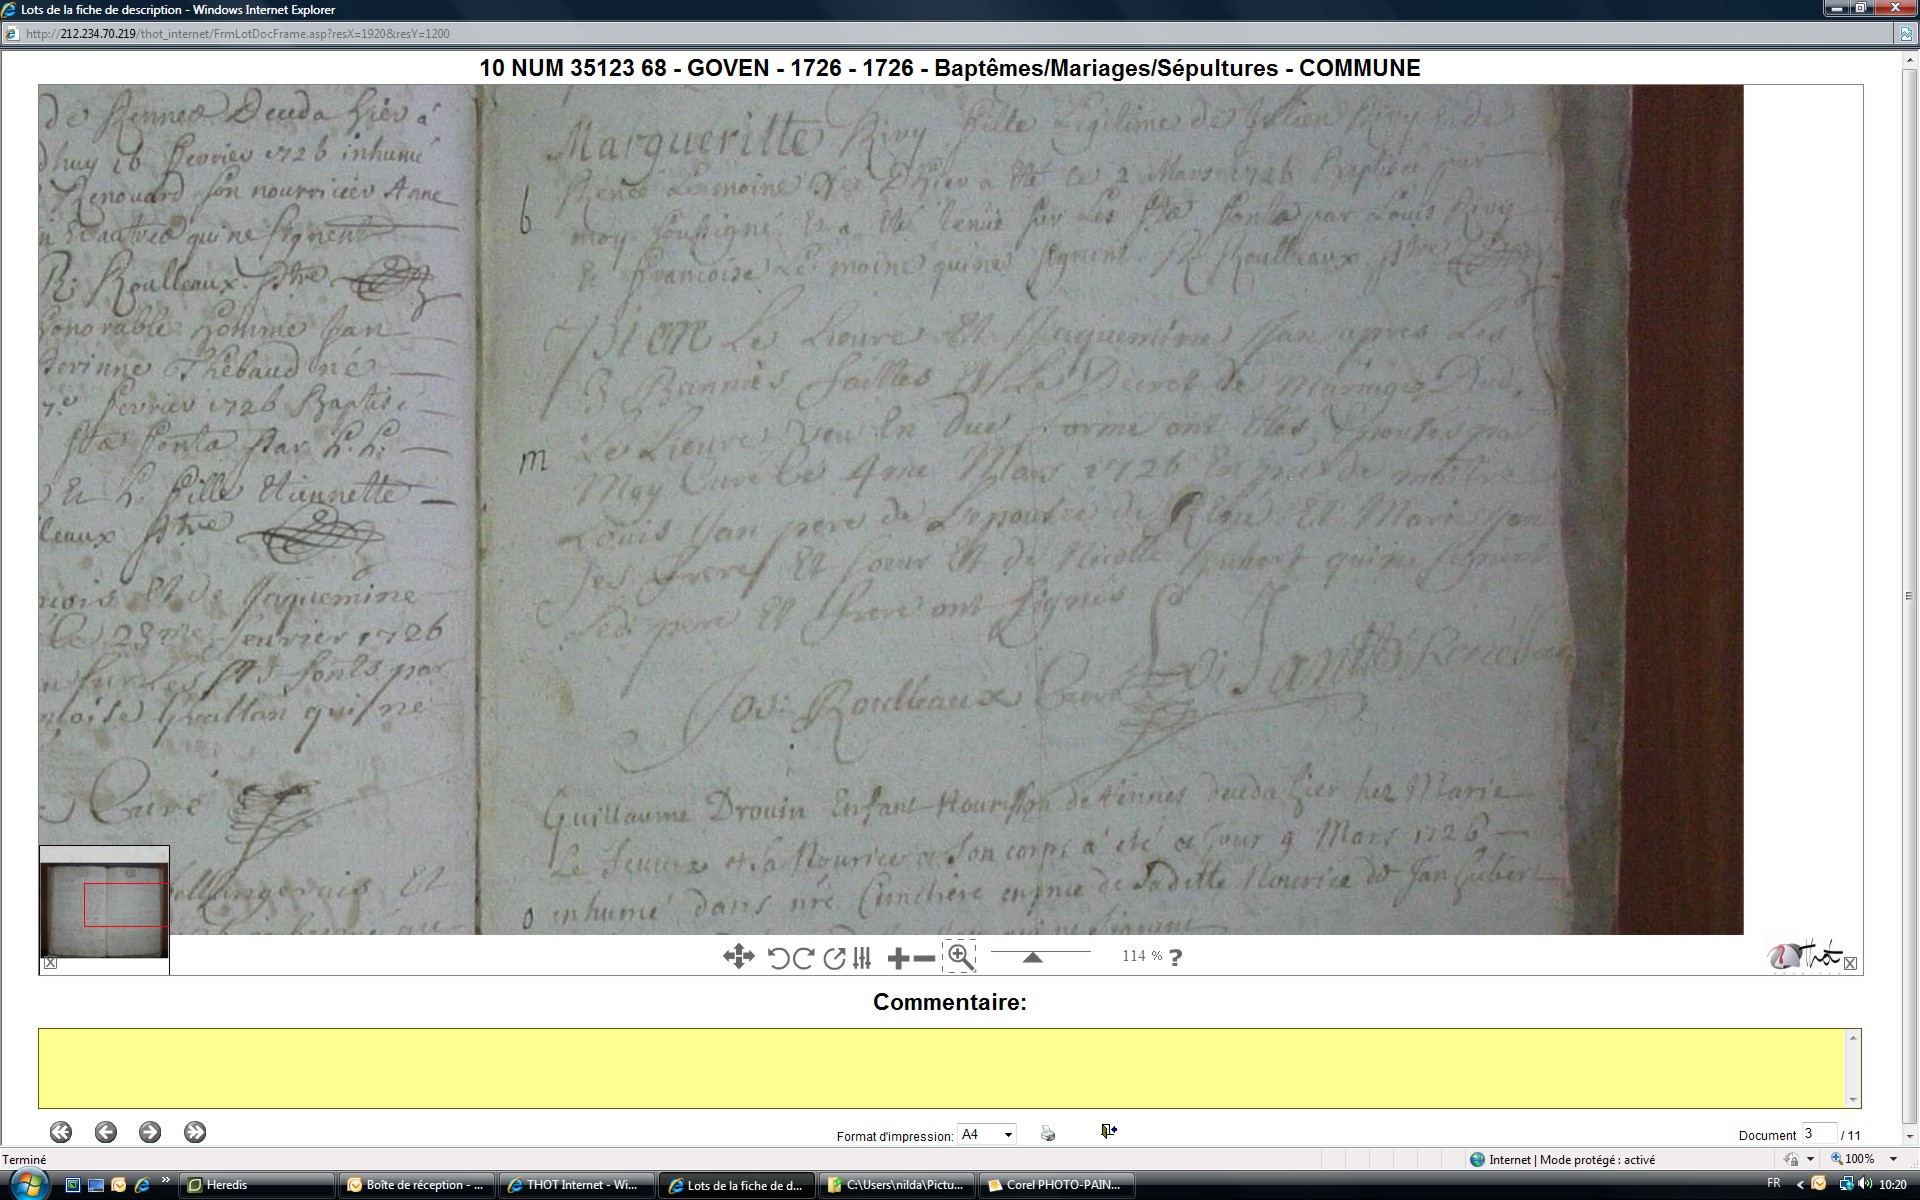 Lots de la fiche de description - Windows Internet Explorer
http://212.234.70.219/thot_internet/FrmLotDocFrame.asp?resX=1920&resY=1200
10 NUM 35123 68 - GOVEN - 1726 - 1726 - Baptêmes/Mariages/Sépultures - COMMUNE
de Rennes Deceda hier a
dhuy 16 fevrier 1726 inhumé
Renouard son nourricier Anne
autres qui ne signent
R: Roulleaux ptre
honorable homme Jan
Perinne Thébaud né
fevrier 1726 Baptisé
fonts par h. h.
Et h. fille Etiennette
leaux ptre
Et de Jacquemine
le 23me fevrier 1726
sur Les fonts par
Grallan qui ne
Curé
Et
Margueritte Rivy fille Legitime de Julien Rivy & de
Renée Lemoine Née D'hier a été ce 2 Mars 1726 Baptisée par
b
moy soussigné Et a été tenüe sur Les fonts par Louis Rivy
& Francoise Le moine qui ne signent. R Roulleaux ptre
Le Lieure Et Jaquemine Jan apres Les
3 Bannies faittes Et Le Decret de Mariage Dud.
Le Lieure Veu En Due forme ont Etes Epousés par
m
Moy Curé Ce 4me Mars 1726 En de
Louis Jan pere de Lepousee de René Et Marie Jan
ses freres Et soeur Et de Nicolle hubert qui ne signent
Led. pere Et frere ont signés
Jos: Roulleaux Curé
L Jan René Jan
Guillaume Drouin Enfant Nourisson de Rennes deceda hier chez Marie
Le Feuvre et sa Nourice et son corps a été ce Jour 9 Mars 1726
o
inhumé dans nre Cimetière en pnce de Saditte Nourice de Jan hubert
114 % ?
Thot
Commentaire:
Format d'impression: A4
Document 3 / 11
Terminé
Internet | Mode protégé : activé
100%
Heredis
Boîte de réception - ...
THOT Internet - Wi...
Lots de la fiche de d...
C:\Users\nilda\Pictu...
Corel PHOTO-PAIN...
FR
10:20